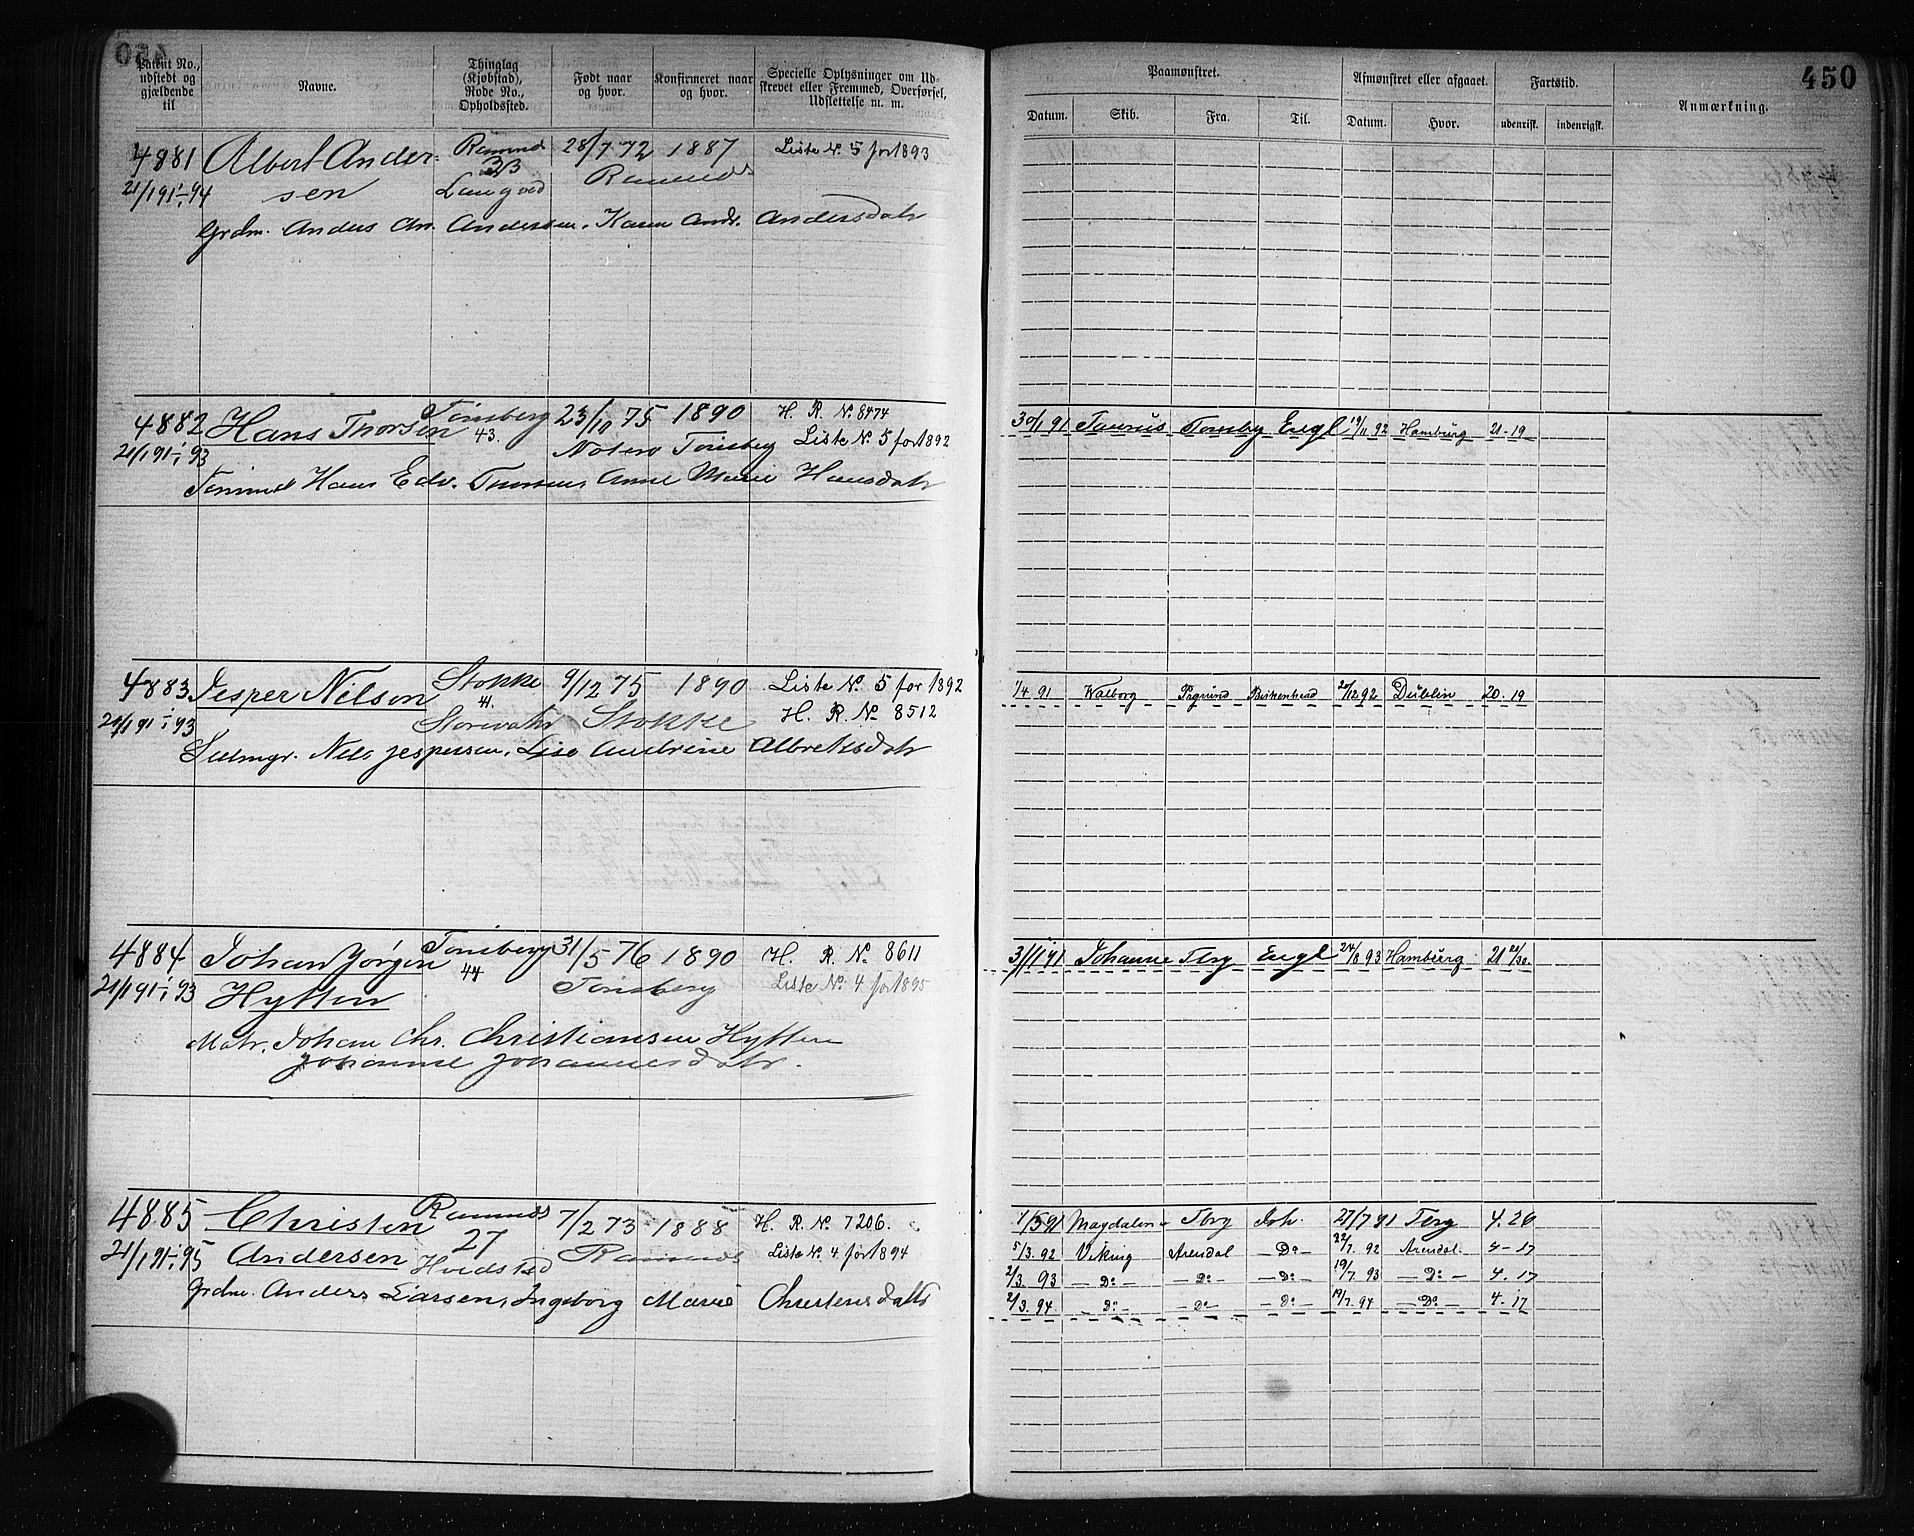 450
Patent No., udstedt og gjældende til
Navne.
Thinglag (Kjøbstad), Rode No., Opholdssted.
Født naar og hvor.
Konfirmeret naar og hvor.
Specielle Oplysninger om Udskrevet eller Fremmed, Overførsel, Udslettelse m. m.
Paamønstret.
Afmønstret eller afgaaet.
Fartstid.
Anmærkning.
450
Datum. Skib. Fra. Til. Datum. Hvor. udenrisk. indenrigsk.
4881 Albert Ander- Ramnes 28/7 72 1887 Liste No. 5 for 1893
21/1 91 - 94 sen Ramnes
Grdm. Anders Chr. Andersen, Karen Andr. Andersdatr
4882 Hans Thorsen Tønsberg 43. 23/10 75 1890 H. R. No. 8474
21/1 91 - 93 Noterø Tønsberg Liste No. 5 for 1892
Tømmd Hans Edv. Thorsen, Anne Marie Hansdatr
30/1 91 Taurus Tønsbg Engl 19/11 92 Hamburg 21-19
4883 Jesper Nilsen Stokke 9/12 75 1890 Liste No. 5 for 1892
21/1 91 - 93 Stokke H. R. No 8512
Selvmgr. Nils Jespersen, Lise Andrine Albretsdatr
1/4 91 Valborg Psgrund Birkenhead 20/12 92 Dublin 20. 19
4884 Johan Jørgen Tønsberg 44 31/5 76 1890 H. R. No. 8611
21/1 91 - 93 Hytten Tønsberg Liste No. 4 for 1895
Matr. Johan Chr. Christiansen Hytten
Johanne Johannesdatr.
3/11 91 Johanne Tbrg Engl 24/8 93 Hamburg 21
4885 Christen Ramnes 27 7/2 73 1888 H. R. No. 7206.
21/1 91 - 95 Andersen Hvidsted Ramnes Liste No. 4 for 1894
Grdm. Anders Larsen, Ingeborg Marie Christensdatr
1/3 91 Magdalen Tbrg Ish. 27/7 91 Tbrg 4. 26
5/3. 92 Viking Arendal - Do - 22/7. 92 Arendal. 4 - 17
2/3. 93 - Do - - Do - - Do - 19/7. 93 - Do - 4. 17
2/3. 94 - Do - - Do - - Do - 19/7. 94 - Do - 4. 17